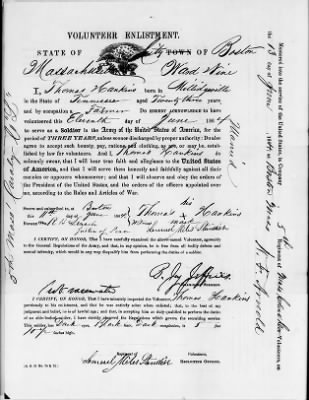 VOLUNTEER ENLISTMENT.
STATE OF City TOWN OF Boston
Massachusetts Ward Nine
I, Thomas Hawkins born in
in the State of Tennessee aged Twenty three years,
and by occupation a Farmer DO HEREBY ACKNOWLEDGE to have
volunteered this Eleventh day of June 1864
to serve as a Soldier in the Army of the United States of America, for the
period of THREE YEARS, unless sooner discharged by proper authority: Do also
agree to accept such bounty, pay, rations, and clothing, as are, or may be, established
by law for volunteers. And I, Thomas Hawkins do
solemnly swear, that I will bear true faith and allegiance to the United States
of America, and that I will serve them honestly and faithfully against all their
enemies or opposers whomsoever; and that I will observe and obey the orders of
the President of the United States, and the orders of the officers appointed over
me, according to the Rules and Articles of War.
Sworn and subscribed to, at Boston
this 11th day of June 1864 Thomas his Hawkins
BEFORE mark
Justice of Peace Samuel Miles Standish
I CERTIFY, ON HONOR, That I have carefully examined the above-named Volunteer, agreeably
to the General Regulations of the Army, and that, in my opinion, he is free from all bodily defects and
mental infirmity, which would in any way disqualify him from performing the duties of a soldier.
B. Joy Jeffries
I CERTIFY, ON HONOR, That I have minutely inspected the Volunteer, Thomas Hawkins
previously to his enlistment, and that he was entirely sober when enlisted; that, to the best of my
judgment and belief, he is of lawful age; and that, in accepting him as duly qualified to perform the
duties of an able-bodied soldier, I have strictly observed the Regulations which govern the recruiting service.
This soldier has Dark eyes, Black hair, Dark complexion, is 5 feet
inches high.
Samuel Miles Standish
Regiment of Volunteers,
RECRUITING OFFICER.
Mustered into the service of the United States, in Company
5th Regiment of Massachusetts Volunteers, on
the 13 day of June, 1864, at Boston Mass
5th Mass Cavalry